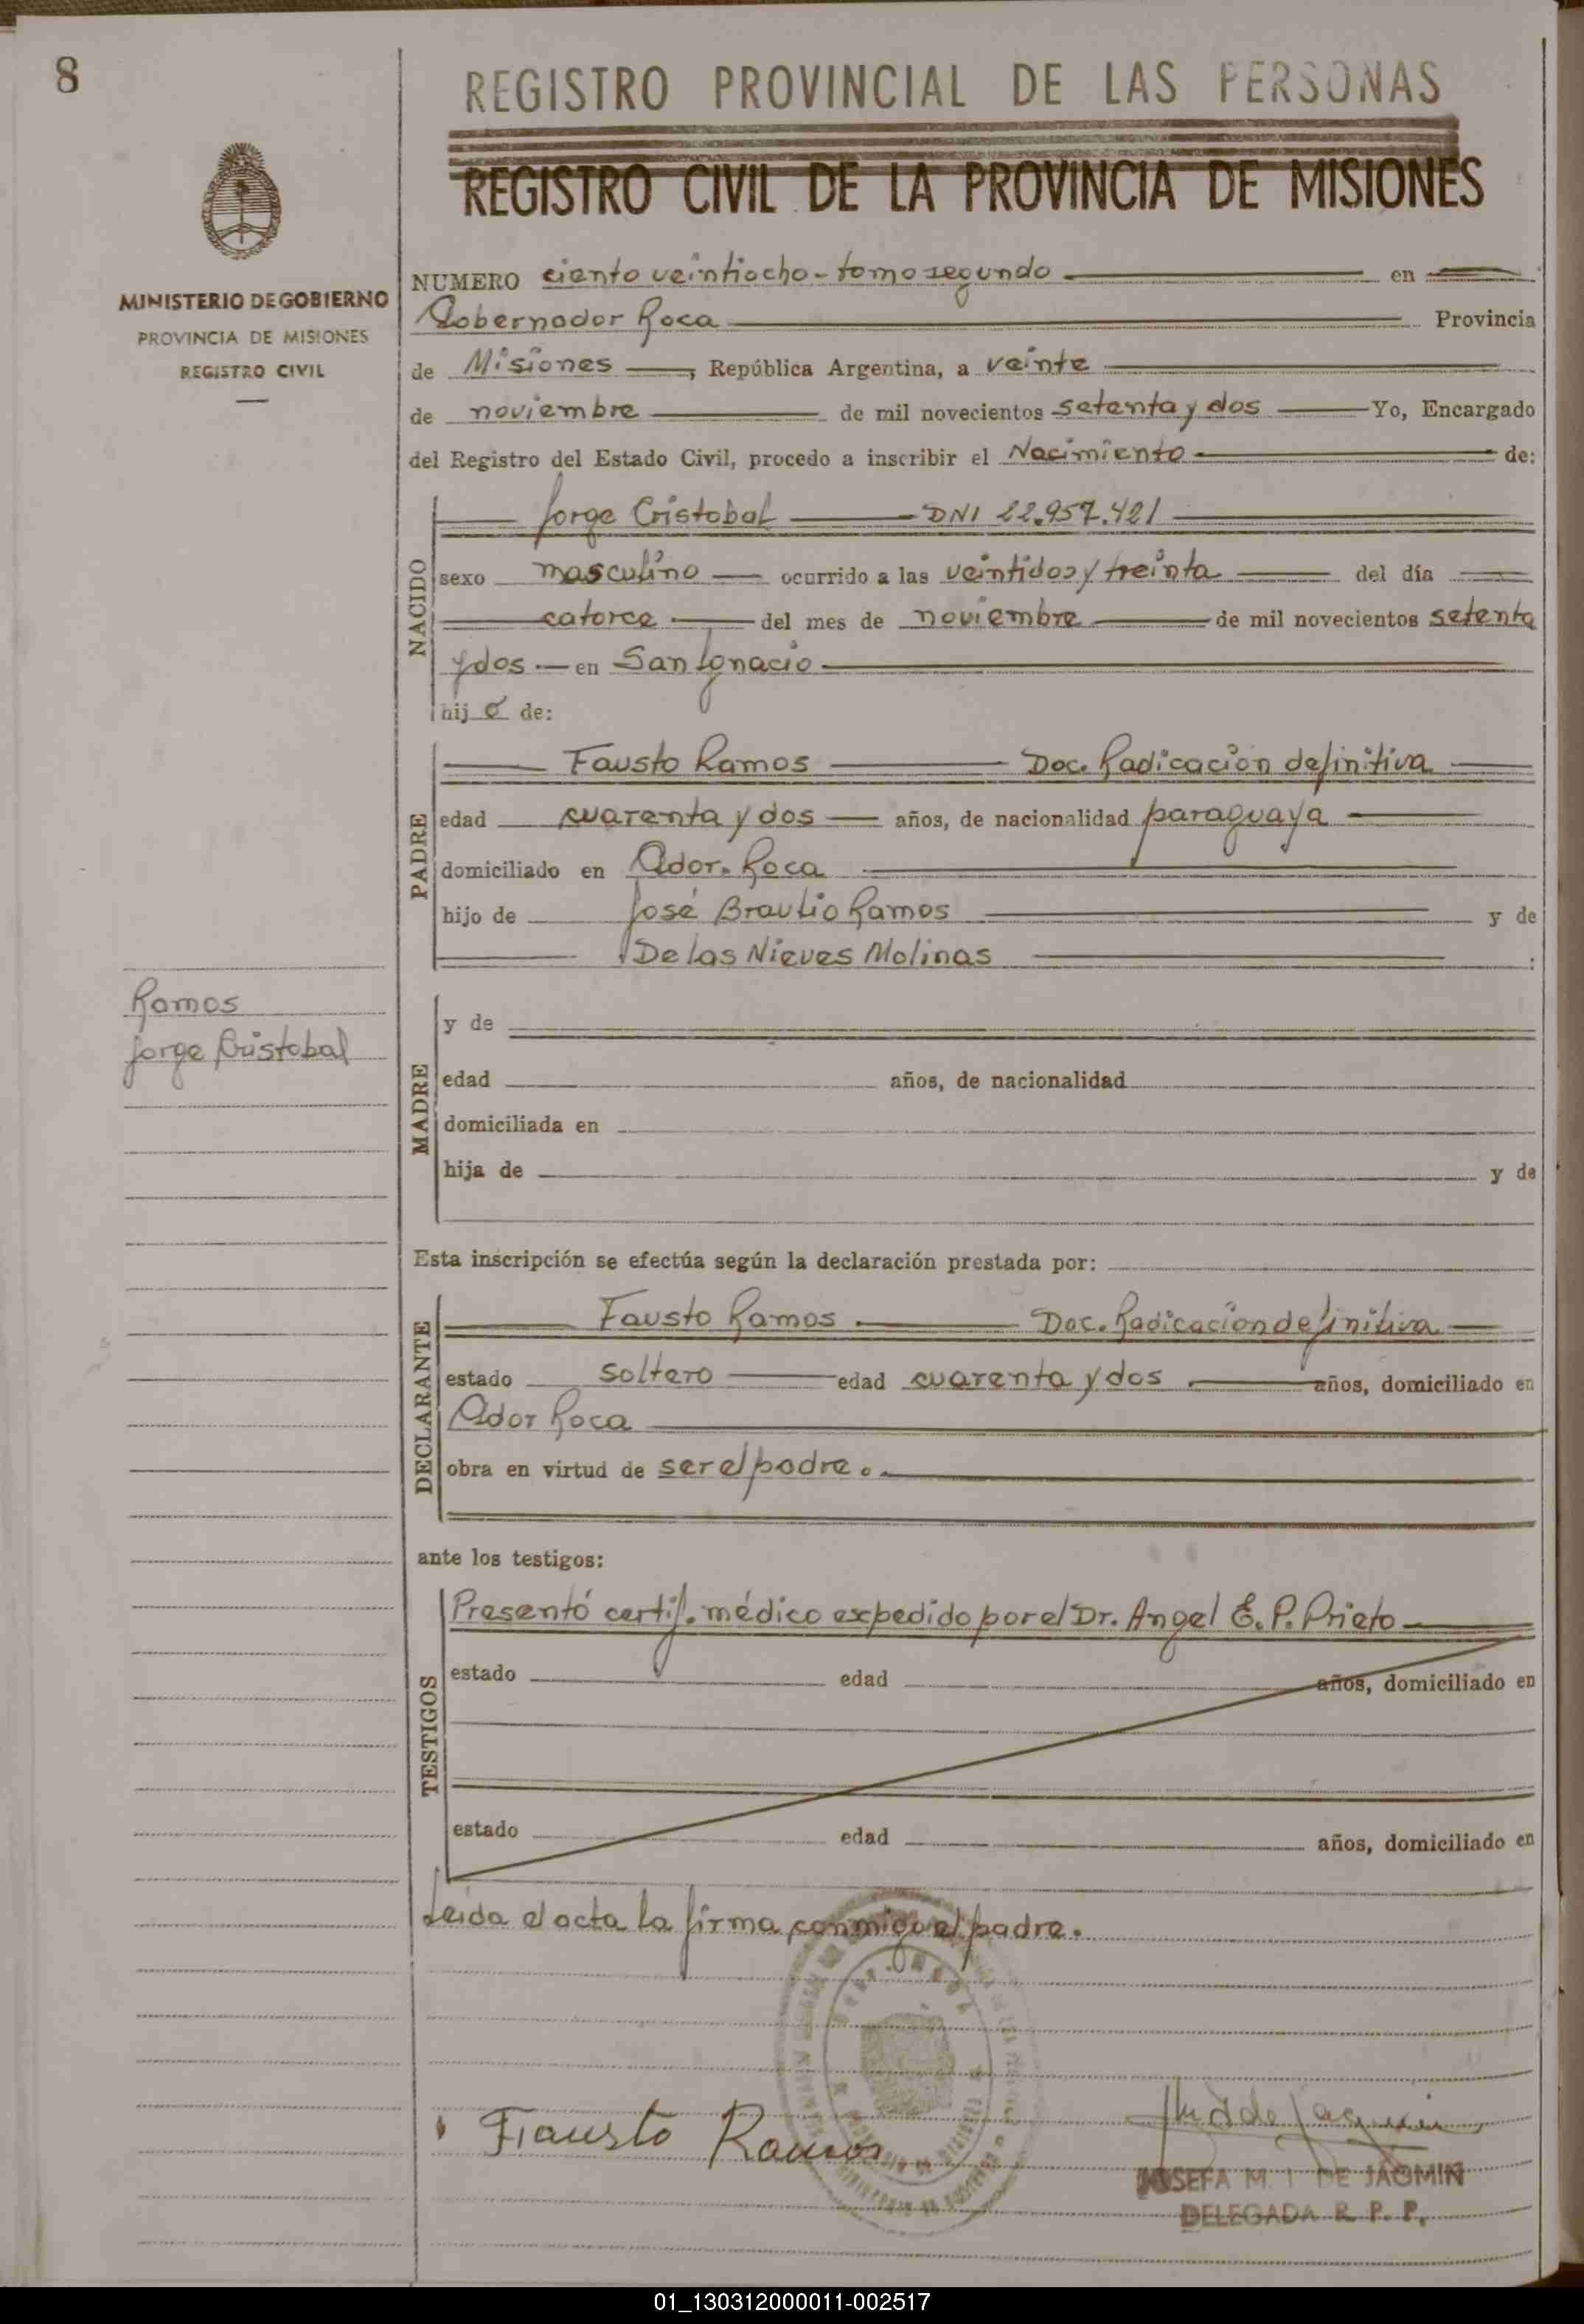 8
REGISTRO PROVINCIAL DE LAS PERSONAS
REGISTRO CIVIL DE LA PROVINCIA DE MISIONES
MINISTERIO DE GOBIERNO
PROVINCIA DE MISIONES
REGISTRO CIVIL
NUMERO ciento veintiocho - tomo segundo en
Gobernador Roca Provincia
de Misiones, República Argentina, a veinte
de noviembre de mil novecientos setenta y dos Yo, Encargado
del Registro del Estado Civil, procedo a inscribir el Nacimiento de:
NACIDO
Jorge Cristobal DNI 22.957.421
sexo masculino ocurrido a las veintidos y treinta del día
catorce del mes de noviembre de mil novecientos setenta
y dos en San Ignacio
hijo de:
PADRE
Fausto Ramos Doc. Radicación definitiva
edad cuarenta y dos años, de nacionalidad paraguaya
domiciliado en Gdor. Roca
hijo de José Braulio Ramos y de
De las Nieves Molinas :
Ramos
Jorge Cristobal
MADRE
y de
edad años, de nacionalidad
domiciliada en
hija de y de
Esta inscripción se efectúa según la declaración prestada por:
DECLARANTE
Fausto Ramos Doc. Radicación definitiva
estado soltero edad cuarenta y dos años, domiciliado en
Gdor Roca
obra en virtud de ser el padre.
ante los testigos:
TESTIGOS
Presentó certif. médico expedido por el Dr. Angel E. P. Prieto
estado edad años, domiciliado en
estado edad años, domiciliado en
Leida el acta la firma conmigo el padre.
Fausto Ramos
JOSEFA M. I. DE JAQMIN
DELEGADA R. P. P.
01_130312000011-002517